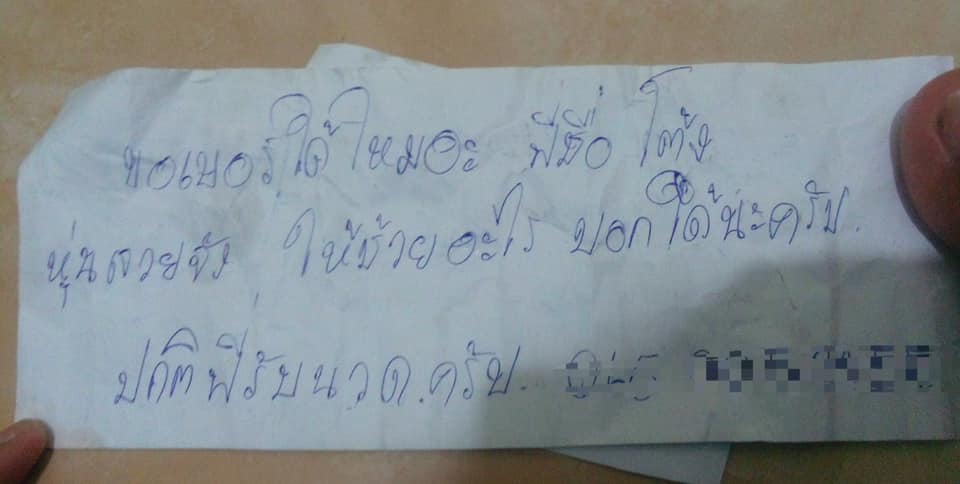 ขอเบอร์ได้ไหมอะ พี่ชื่อ โต้ง
หุ่นสวยจัง ให้ช้วยอะไร บอกได้น่ะครับ.
ปกติพี่รับนวด.ครับ.